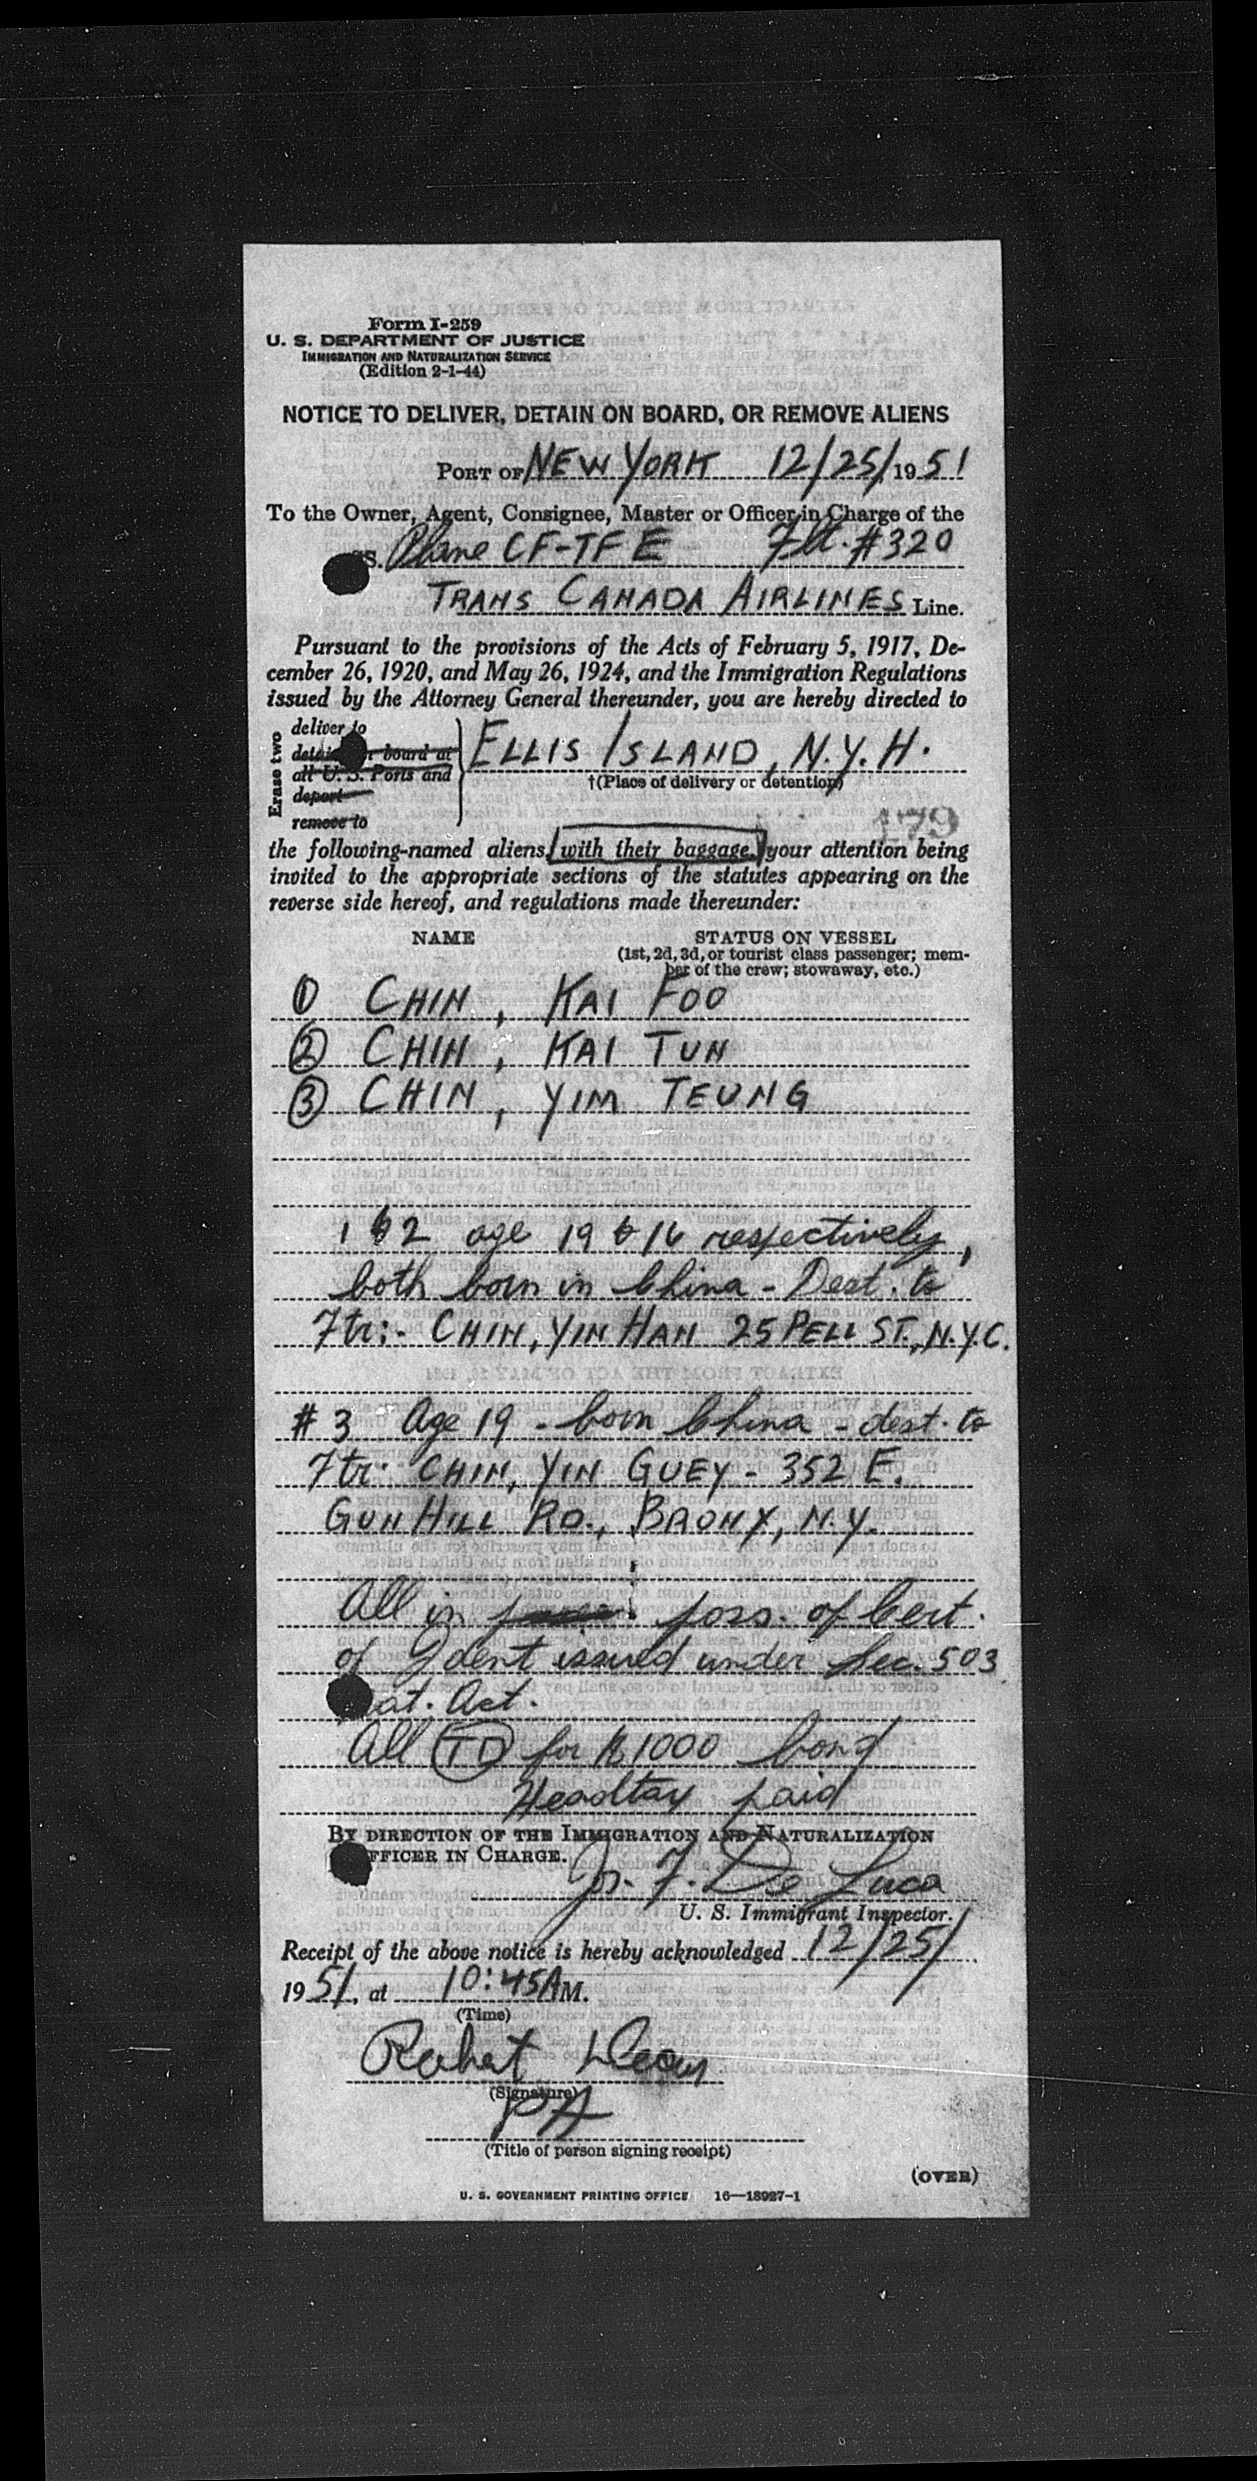 Form I-259
U. S. DEPARTMENT OF JUSTICE
IMMIGRATION AND NATURALIZATION SERVICE
(Edition 2-1-44)
NOTICE TO DELIVER, DETAIN ON BOARD, OR REMOVE ALIENS
PORT OF NEW YORK 12/25/1951
To the Owner, Agent, Consignee, Master or Officer in Charge of the
SS. Plane CF-TFE Flt. #320
TRANS CANADA AIRLINES Line.
Pursuant to the provisions of the Acts of February 5, 1917, De-
cember 26, 1920, and May 26, 1924, and the Immigration Regulations
issued by the Attorney General thereunder, you are hereby directed to
Erase two
deliver to
detain on board at
all U. S. Ports and
deport
remove to
ELLIS ISLAND, N.Y.H.
†(Place of delivery or detention)
179
the following-named aliens, with their baggage, your attention being
invited to the appropriate sections of the statutes appearing on the
reverse side hereof, and regulations made thereunder:
NAME STATUS ON VESSEL
(1st, 2d, 3d, or tourist class passenger; mem-
ber of the crew; stowaway, etc.)
① CHIN, KAI FOO
② CHIN, KAI TUN
③ CHIN, YIM TEUNG
1 & 2 age 19 & 16 respectively,
both born in China - Dest. to
Ftr:- CHIN, YIN HAN 25 PELL ST., N.Y.C.
# 3 Age 19 - born China - dest. to
Ftr. CHIN, YIN GUEY - 352 E.
GUN HILL RD., BRONX, N.Y.
All in poss. of Cert.
of Ident issued under Sec. 503
Nat. Act.
All TD for $1000 bond
Headtax paid
BY DIRECTION OF THE IMMIGRATION AND NATURALIZATION
OFFICER IN CHARGE.
Jos. F. De Luca
U. S. Immigrant Inspector.
Receipt of the above notice is hereby acknowledged 12/25/
1951, at 10:45 A M.
(Time)
Robert
(Signature)
PA
(Title of person signing receipt)
(OVER)
U. S. GOVERNMENT PRINTING OFFICE 16—18927-1